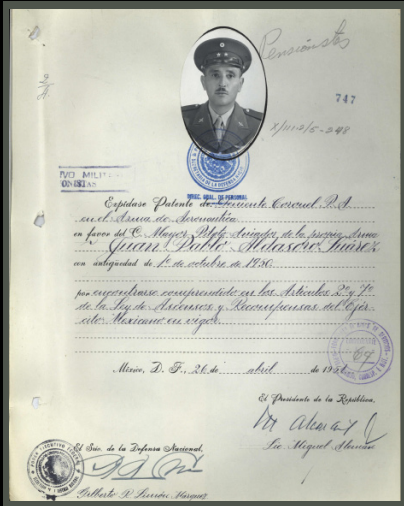 Pensionistas
747
X/III-2/5-248
DIREC. GRAL. DE PERSONAL
Expídase Patente de Teniente Coronel P. A.
en el Arma de Aeronáutica
en favor del C. Mayor Piloto Aviador de la propia Arma
Juan Pablo Aldasoro Suárez
con antigüedad de 1o. de octubre de 1950
por encontrarse comprendido en los Artículos 2o. y 7o.
de la Ley de Ascensos y Recompensas del Ejér-
cito Mexicano en vigor.
México, D. F., 26 de abril de 1951
El Presidente de la República,
Lic. Miguel Alemán
El Srio. de la Defensa Nacional,
Gilberto R. Limón Márquez